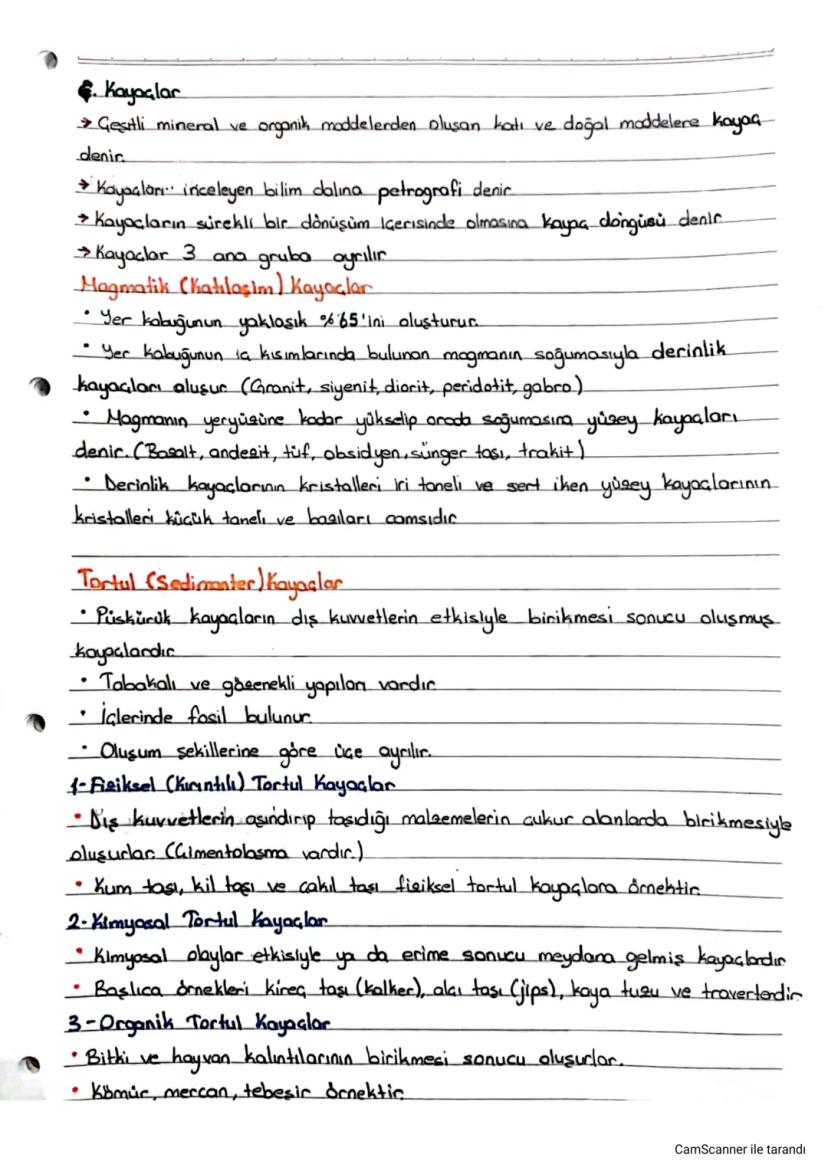 6. Kayaçlar
→ Çeşitli mineral ve organik maddelerden oluşan katı ve doğal maddelere kayaç
denir.
→ Kayaçları inceleyen bilim dalına petrografi denir
→ Kayaçların sürekli bir dönüşüm içerisinde olmasına kayaç döngüsü denir
→ Kayaçlar 3 ana gruba ayrılır
Magmatik (Katılaşım) Kayaçlar
• Yer kabuğunun yaklaşık %65'ini oluşturur.
• Yer kabuğunun iç kısımlarında bulunan magmanın soğumasıyla derinlik
kayaçları oluşur (Granit, siyenit, diorit, peridotit, gabro)
• Magmanın yeryüzüne kadar yükselip orada soğumasına yüzey kayaçları
denir. (Bazalt, andezit, tüf, obsidyen, sünger taşı, trakit)
• Derinlik kayaçlarının kristalleri iri taneli ve sert iken yüzey kayaçlarının
kristalleri küçük taneli ve bazıları camsıdır
Tortul (Sedimanter) Kayaçlar
• Püskürük kayaçların dış kuvvetlerin etkisiyle birikmesi sonucu oluşmuş
kayaçlardır
• Tabakalı ve gözenekli yapıları vardır
• İçlerinde fosil bulunur
• Oluşum şekillerine göre üçe ayrılır.
1- Fiziksel (Kırıntılı) Tortul Kayaçlar
• Dış kuvvetlerin aşındırıp taşıdığı malzemelerin çukur alanlarda birikmesiyle
oluşurlar. (Çimentolaşma vardır.)
• Kum taşı, kil taşı ve çakıl taşı fiziksel tortul kayaçlara örnektir
2- Kimyasal Tortul Kayaçlar
• Kimyasal olaylar etkisiyle ya da erime sonucu meydana gelmiş kayaçlardır
• Başlıca örnekleri kireç taşı (kalker), alçı taşı (jips), kaya tuzu ve travertendir
3- Organik Tortul Kayaçlar
• Bitki ve hayvan kalıntılarının birikmesi sonucu oluşurlar.
• Kömür, mercan, tebeşir örnektir
CamScanner ile tarandı